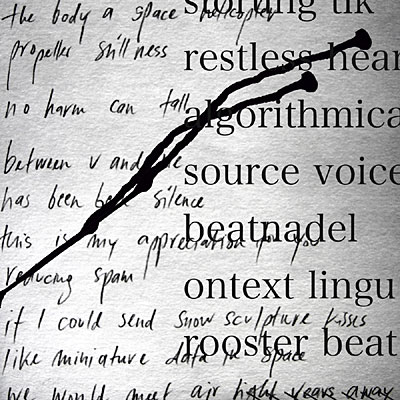 the body a space helicopter
propeller stillness
no harm can fall
between v and the
has been beat silence
this is my appreciation for you
reducing spam
if I could send snow sculpture kisses
like miniature data in space
we would meet air light years away
restless hear
algorithmica
source voice
beatnadel
ontext lingu
rooster beat